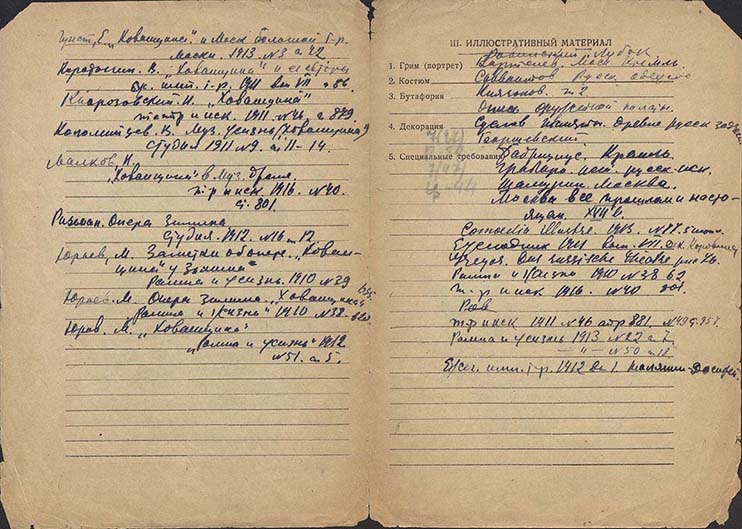 Гунст, Е. „Хованщина" и Моск большой т-р.
Маски. 1913 №3 с 42
Каратыгин. В. „Хованщина" и ее авторы
Еж. имп. т-р. 1911 вып VII
Кнорозовский. И. „Хованщина"
театр и иск. 1911 №46, с 879
Коломийцев. В. Муз. жизнь (Хованщина)
Студия 1911 №9. с 11-14.
Малков, Н.
„Хованщина" в Муз. драме.
т-р и иск 1916. №40.
с. 801.
Россова. Опера Зимина
Студия. 1912. №16 с 12
Юрьев, М. Заметки об опере „Хован-
щина" у Зимина
Рампа и жизнь. 1910 №39 с 635.
Юрьев. М. Опера Зимина. „Хованщина"
„Рампа и жизнь" 1910 №38. с 620
Юрьев. М. „Хованщина"
„Рампа и жизнь" 1912
№51. с. 5.
III. ИЛЛЮСТРАТИВНЫЙ МАТЕРИАЛ
Ровинский. Лубок
1. Грим (портрет) Бартенев. Моск Кремль
2. Костюм Савваитов Русск
3. Бутафория т. 2.
Опись оружейной палаты
4. Декорация Суслов Памятн. древне русск зодч
Георгиевский.
5. Специальные требования Фабрициус. Кремль
Грабарь ист. русск. иск.
Шамурин. Москва.
Москва в ее прошлом и насто-
ящем. XVII в.
Comoedia illustré. 1913. №17.
Ежегодник 1911 вып. VII. дек. Коровина
Gregor. Das russische Theater
Рампа и жизнь 1910 №38 62
т-р и иск 1916. №40 801.
т-р и иск 1911 №46 стр 881. №49 с. 957.
Рампа и жизнь 1913 №22 с 7.
—„— №50 с 12
Ежег. имп. т-р. 1912 в. 1 Шаляпин-Досифей.